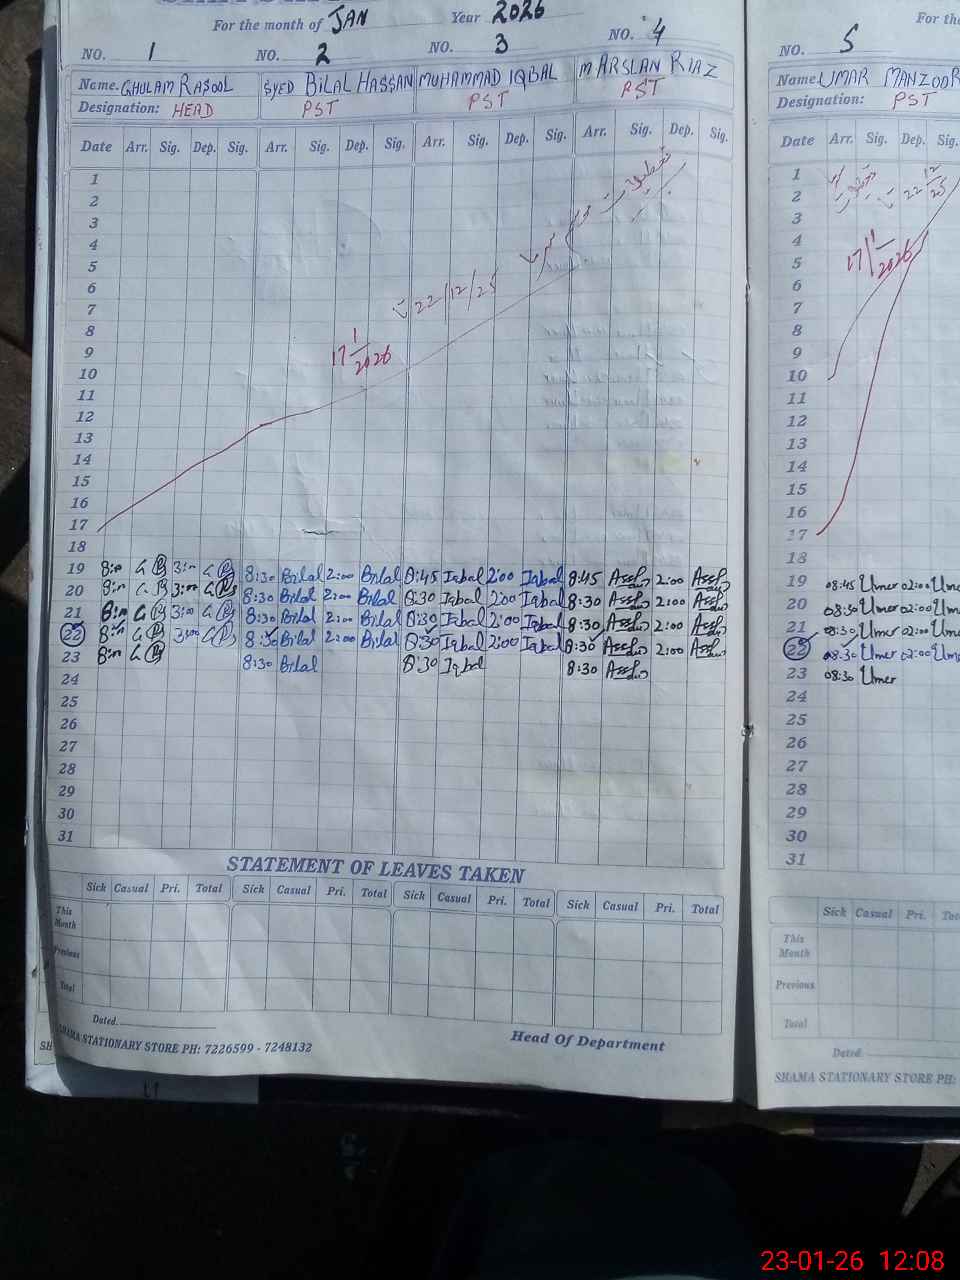 For the month of JAN Year 2026
NO. 1 NO. 2 NO. 3 NO. 4
Name. GHULAM RASOOL SYED BILAL HASSAN MUHAMMAD IQBAL M ARSLAN RIAZ
Designation: HEAD PST PST PST
Date Arr. Sig. Dep. Sig. Arr. Sig. Dep. Sig. Arr. Sig. Dep. Sig. Arr. Sig. Dep. Sig.
1
2
3
4
5
6
22/12/25
7
8
9
17 1/2026
10
11
12
13
14
15
16
17
18
19 8:30 Bilal 2:00 Bilal 8:45 Iqbal 2:00 Iqbal 8:45 2:00
20 8:30 Bilal 2:00 Bilal 8:30 Iqbal 2:00 Iqbal 8:30 2:00
21 8:30 Bilal 2:00 Bilal 8:30 Iqbal 2:00 Iqbal 8:30 2:00
22 8:30 Bilal 2:00 Bilal 8:30 Iqbal 2:00 Iqbal 8:30 2:00
23 8:30 Bilal 8:30 Iqbal 8:30
24
25
26
27
28
29
30
31
STATEMENT OF LEAVES TAKEN
Sick Casual Pri. Total Sick Casual Pri. Total Sick Casual Pri. Total Sick Casual Pri. Total
This Month
Previous
Total
Dated.
Head Of Department
SHAMA STATIONARY STORE PH: 7226599 - 7248132
For the
NO. 5
Name UMAR MANZOOR
Designation: PST
Date Arr. Sig. Dep.
1
2 22 12/25
3
4
5 17 1/2026
6
7
8
9
10
11
12
13
14
15
16
17
18
19 08:45 Umer 02:00
20 08:30 Umer 02:00
21 08:30 Umer 02:00
22 08:30 Umer 02:00
23 08:30 Umer
24
25
26
27
28
29
30
31
Sick Casual Pri.
This Month
Previous
Total
Dated
SHAMA STATIONARY STORE PH:
23-01-26 12:08